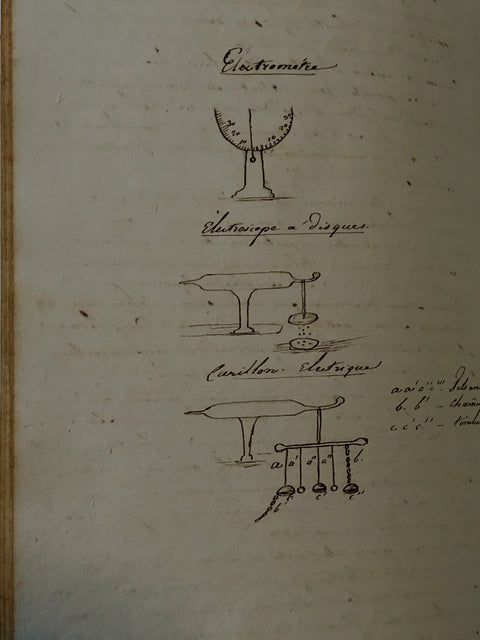 Électromètre
Électroscope à disques
Carillon Electrique
a a' a'' a'''
b. b' — Chaîn
c. c' c'' — timb
a a' a'' a''' b.
b' c c' c''